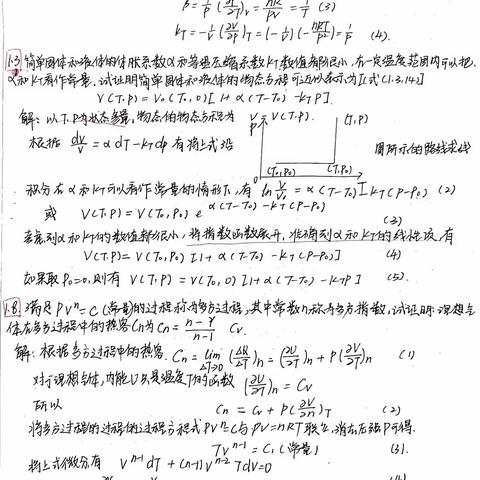 β = 1/p (∂p/∂T)_V = nR/pV = 1/T (3)
κ_T = -1/V (∂V/∂p)_T = (-1/V)(-nRT/p²) = 1/p (4).
1.3 简单固体和液体的体胀系数α和等温压缩系数κT数值都很小,在一定温度范围内可以把
α和κT看作常量.试证明简单固体和液体的物态方程可近似表示为[式(1.3.14)]
V(T,P) = V0(T0,0)[1+α(T-T0)-κTP].
解:以T,P为状态参量,物态的物态方程为 V=V(T,P).
根据 dV/V = αdT - κTdp 有将上式沿
P
(T,P)
(T0,P0)
(T,P0)
图所示的路线求线
积分在α和κT可以看作常量的情形下,有 ln V/V0 = α(T-T0) - κT(P-P0) (2)
或 V(T,P) = V(T0,P0) e^{α(T-T0)-κT(P-P0)} (3)
考虑到α和κT的数值都很小,将指数函数展开,准确到α和κT的线性项,有
V(T,P) = V(T0,P0) [1+α(T-T0)-κT(P-P0)] (4)
如果取P0=0,则有 V(T,P) = V(T0,0)[1+α(T-T0)-κTP] (5).
1.8. 满足PVⁿ=C(常量)的过程称为多方过程,其中常数n称为多方指数,试证明:理想气
体在多方过程中的热容Cn为Cn = (n-γ)/(n-1) Cv.
解:根据多方过程中的热容. Cn = lim_{ΔT→0}(ΔQ/ΔT)n = (∂U/∂T)n + P(∂V/∂T)n (1)
对于理想气体,内能U只是温度T的函数 (∂U/∂T)n = Cv
所以 Cn = Cv + P(∂V/∂T)n (2)
将多方过程的过程的过程方程式PVⁿ=C与PV=nRT联立,消去压强P可得.
TVⁿ⁻¹ = C1(常量) (3).
将上式微分有 Vⁿ⁻¹dT + (n-1)Vⁿ⁻²TdV=0